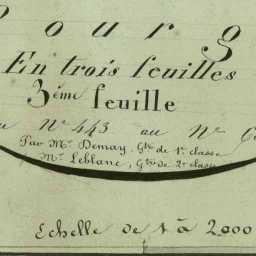 ourg
En trois feuilles
3ème feuille
Nº 443 au Nº
Par Mr. Demay, Gtre de 1re classe
Mr. Leblanc, Gtre de 2e classe
Echelle de 1 à 2000